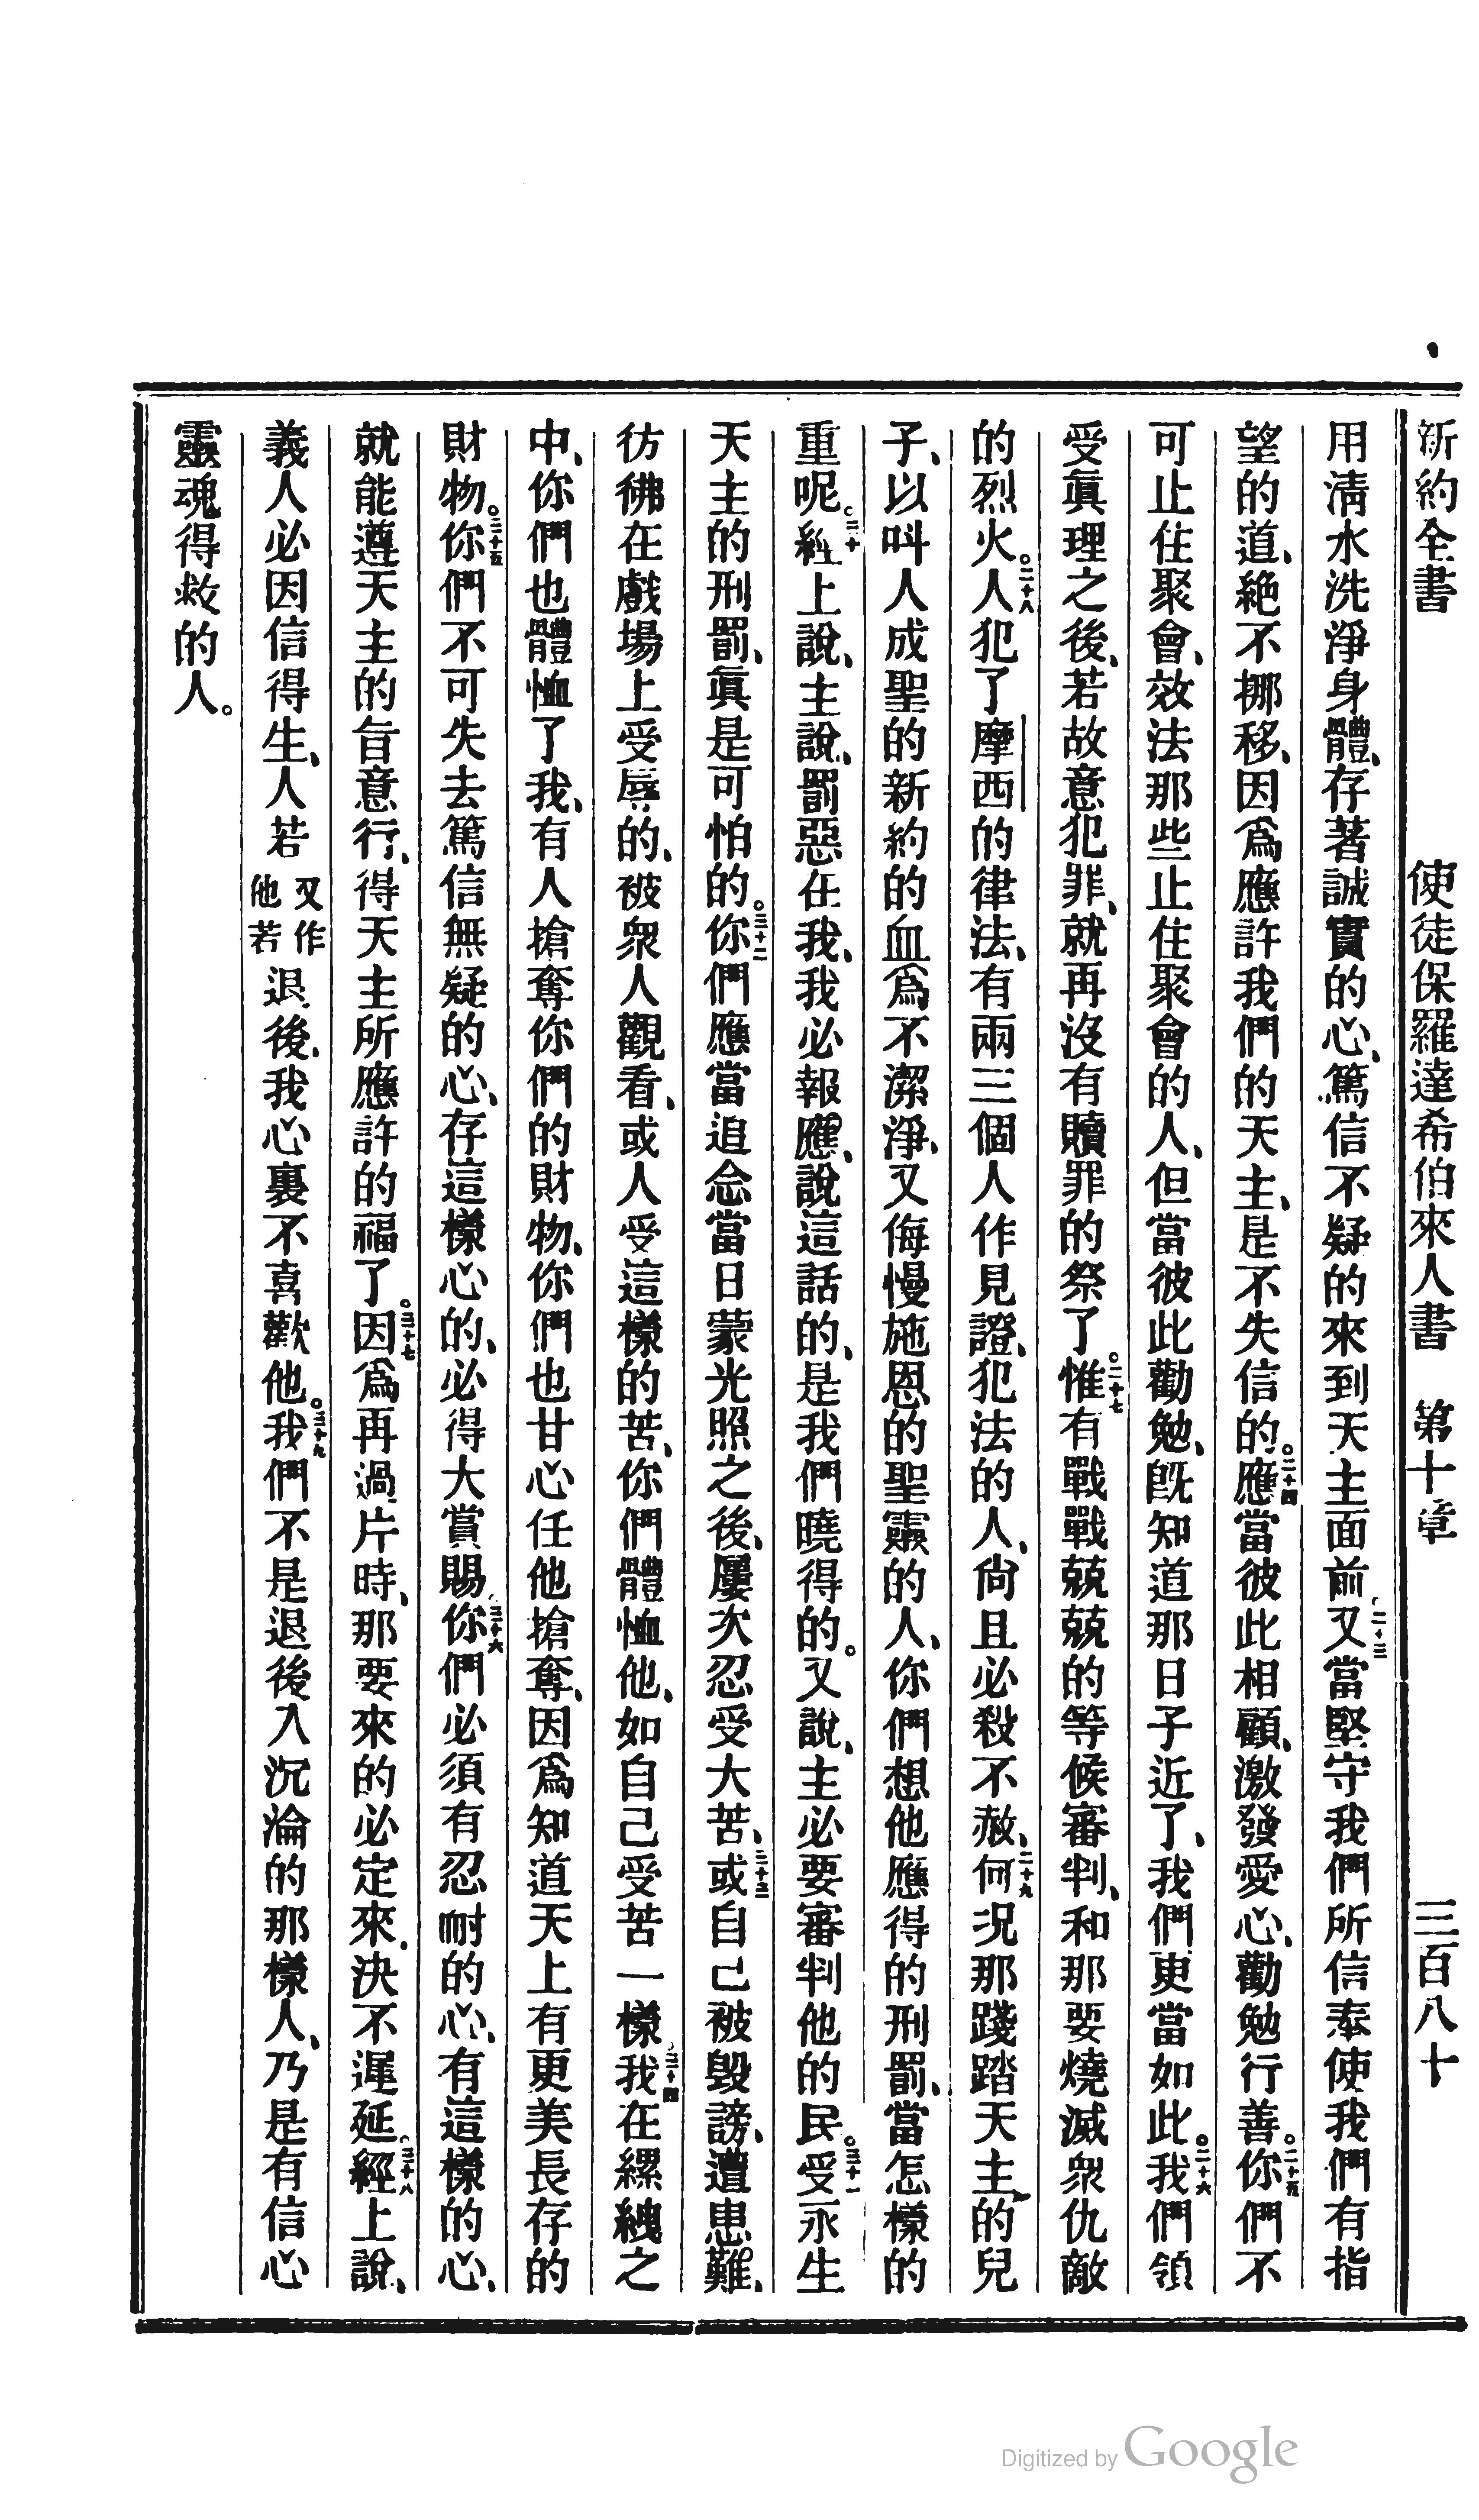 新約全書　使徒保羅達希伯來人書　第十章　三百八十
用淸水洗淨身體、存著誠實的心、篤信不疑的來到天主面前、二十三又當堅守我們所信奉使我們有指
望的道、絕不挪移、因爲應許我們的天主、是不失信的。二十四應當彼此相顧、激發愛心、勸勉行善。二十五你們不
可止住聚會、效法那些止住聚會的人、但當彼此勸勉、旣知道那日子近了、我們更當如此。二十六我們領
受眞理之後、若故意犯罪、就再沒有贖罪的祭了。二十七惟有戰戰兢兢的等候審判、和那要燒滅衆仇敵
的烈火。二十八人犯了摩西的律法、有兩三個人作見證、犯法的人、尙且必殺不赦、二十九何况那踐踏天主的兒
子、以叫人成聖的新約的血爲不潔淨、又侮慢施恩的聖靈的人、你們想他應得的刑罰、當怎樣的
重呢。三十經上說、主說、罰惡在我、我必報應、說這話的、是我們曉得的。又說、主必要審判他的民。三十一受永生
天主的刑罰、眞是可怕的。三十二你們應當追念當日蒙光照之後、屢次忍受大苦、三十三或自己被毀謗、遭患難、
彷彿在戲場上受辱的、被衆人觀看、或人受這樣的苦、你們體恤他、如自己受苦一樣、三十四我在縲絏之
中、你們也體恤了我、有人搶奪你們的財物、你們也甘心任他搶奪、因爲知道天上有更美長存的
財物。三十五你們不可失去篤信無疑的心、存這樣心的、必得大賞賜、三十六你們必須有忍耐的心、有這樣的心、
就能遵天主的旨意行、得天主所應許的福了。三十七因爲再過片時、那要來的必定來、決不遲延、三十八經上說、
義人必因信得生、人若又作他若退後、我心裏不喜歡他。三十九我們不是退後入沉淪的那樣人、乃是有信心
靈魂得救的人。
Digitized by Google